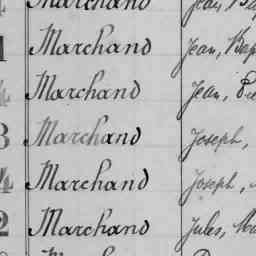 Marchand Jean, Ba
1 Marchand Jean, Bap
4 Marchand Jean,
3 Marchand Joseph,
4 Marchand Joseph,
2 Marchand Jules, Ma